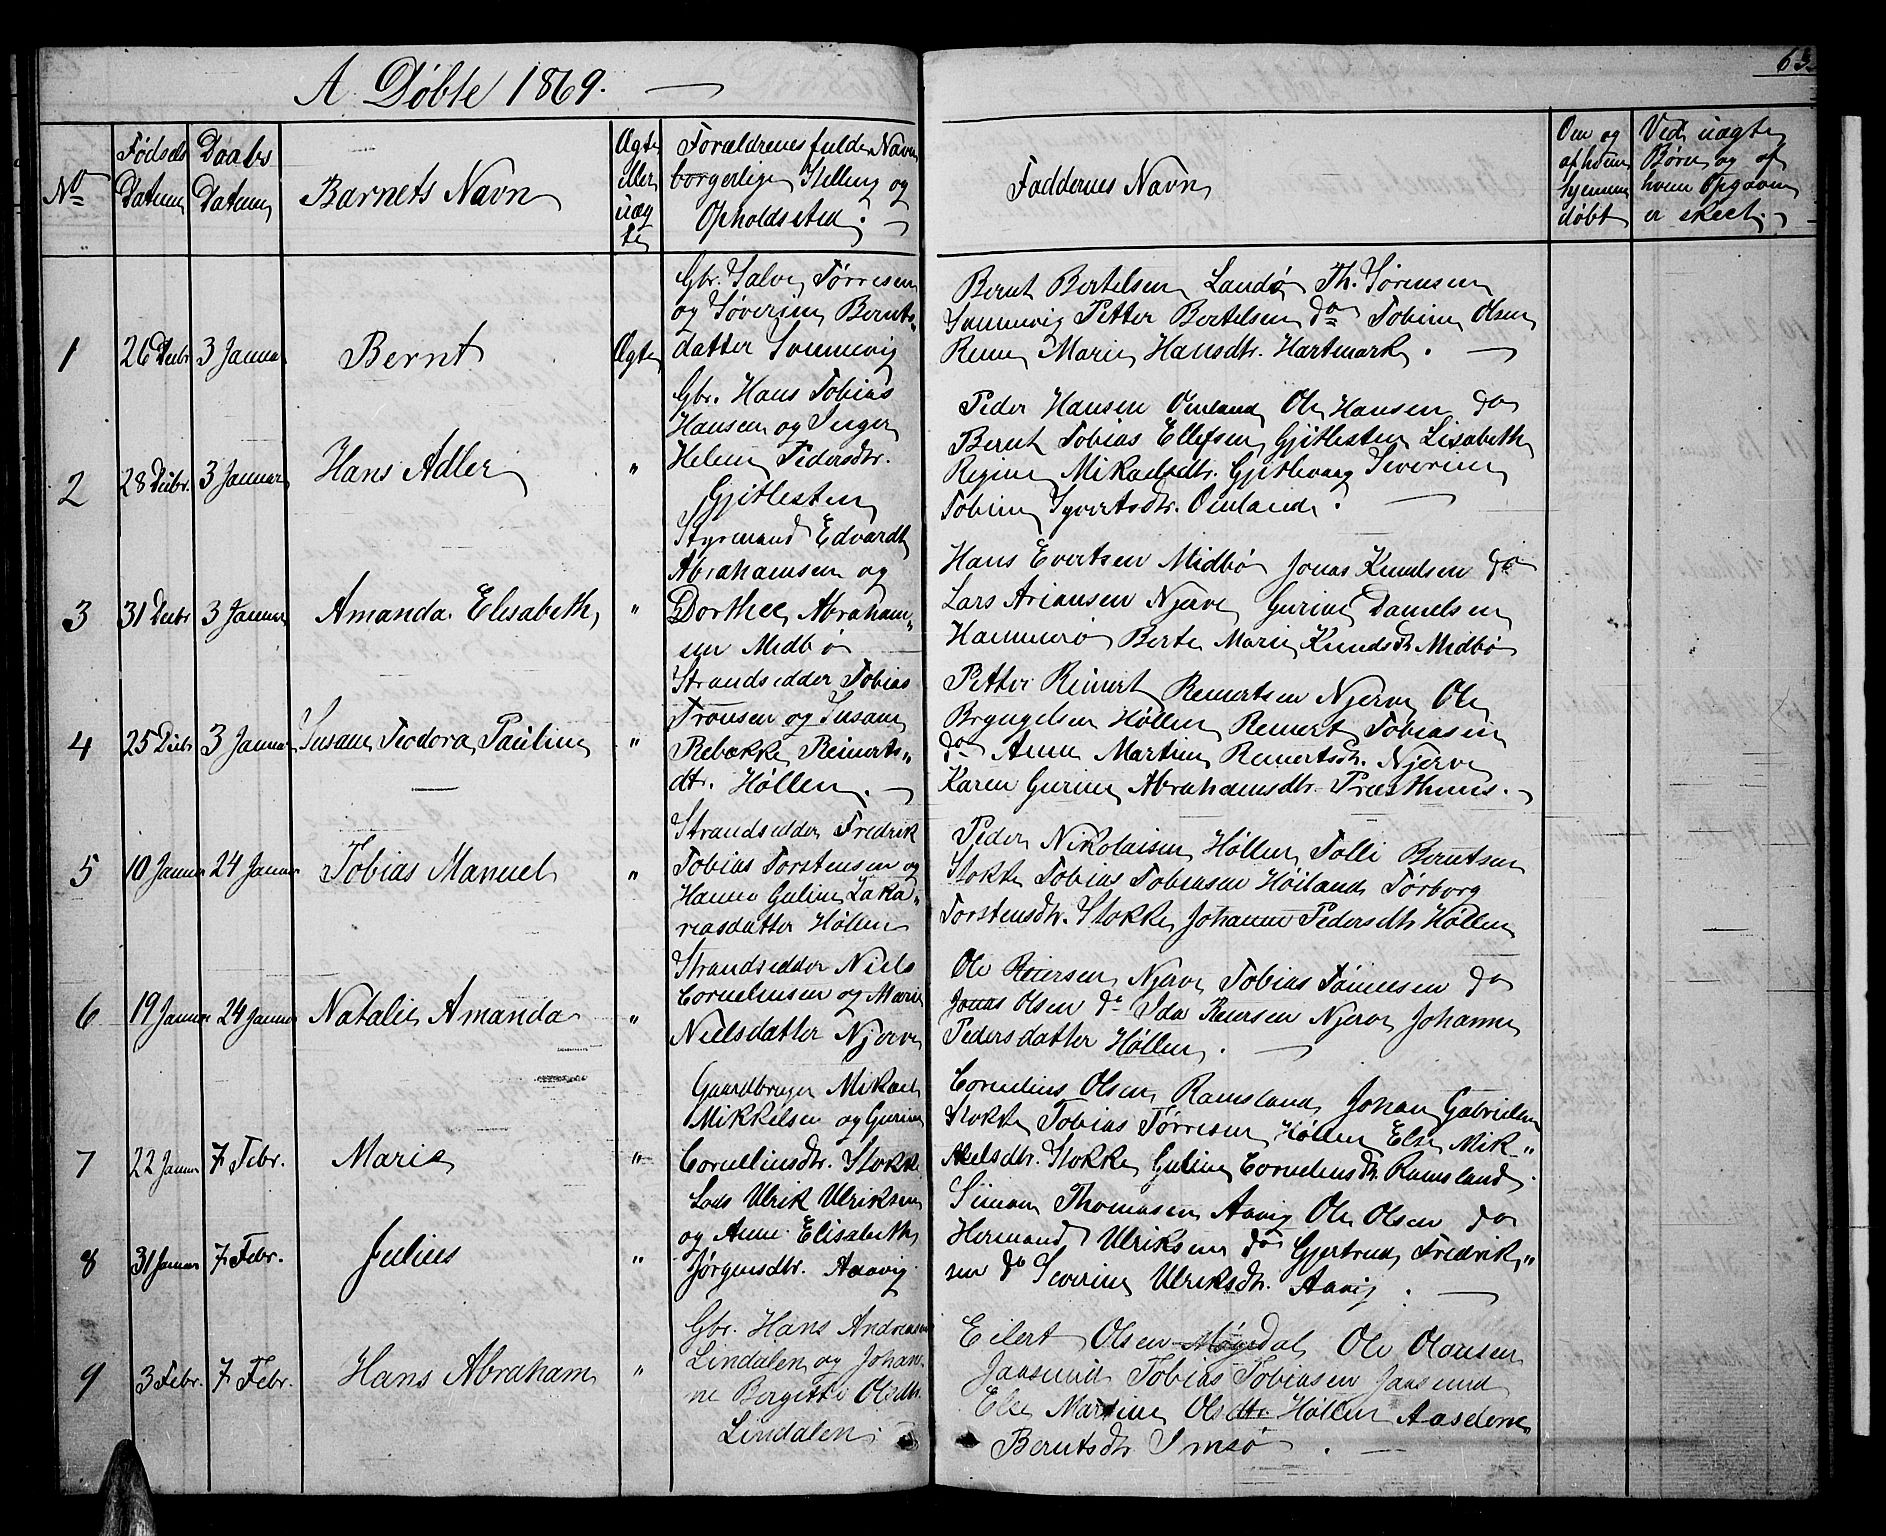 63
A Døbte 1869.
No
Fødsels Datum
Daabs Datum
Barnets Navn
Ægte eller uægte
Forældrenes fulde Navn borgerlige Stilling og Opholdssted.
Faddernes Navn
Om og af hvem hjemmedøbt
Ved uægte Børn og af hvem Opgaven er skeet.
1
26 Decbr
3 Januar
Bernt
Ægte
Gbr. Salve Tørresen
og Søverine Bernts„
datter Svinnevig
Bernt Bertelsen Landø Th. Sørensen
Svinnevig Petter Bertelsen do Tobine Olsen
Rime Marie Hansdtr. Hartmark.
2
28 Decbr.
3 Januar
Hans Adler
"
Gbr. Hans Tobias
Hansen og Inger
Helene Pedersdtr.
Gjitlesten
Peder Hansen Omland Ole Hansen do
Bernt Tobias Ellefsen Gjitlesten Lisabeth
Regine Mikaelsdtr. Gjitlevaag Severine
Tobine Syvertsdtr. Omland.
3
31 Decbr
3 Januar
Amanda Elisabeth
"
Styrmand Edvardt
Abrahamsen og
Dorthee Abraham„
sen Midbø
Hans Evertsen Midbø Jonas Knudsen do
Lars Ariansen Njerve Gurine Danielsen
Hammerø Berte Marie Knudsdtr Midbø
4
25 Decbr
3 Januar
Susane Teodora Pauline
"
Strandsidder Tobias
Tronsen og Susane
Rebække Reinerts„
dt. Høllen.
Petter Reinert Reinertsen Njerve Ole
Bryngelsen Høllen Reinert Tobiasen
do Anne Martine Reinertsdtr. Njerve
Karen Gurine Abrahamsdtr. Præsthuus.
5
10 Januar
24 Januar
Tobias Manuel
"
Strandsidder Fredrik
Tobias Torstensen og
Hanne Guline Zaka„
riasdatter Høllen
Peder Nikolaisen Høllen Tolli Berntsen
Stokke Tobias Tobiasen Høiland Tørborg
Torstensdtr. Stokke Johanne Pedersdtr Høllen
6
19 Januar
24 Januar
Natalie Amanda
"
Strandsidder Niels
Corneliusen og Marie
Nielsdatter Njerve
Ole Reiersen Njerve Tobias Tønnesen do
Jonas Olsen do Ida Reiersen Njerve Johanne
Pedersdatter Høllen.
7
22 Januar
7 Febr.
Marie
"
Gaardbruger Mikael
Mikkelsen og Gurine
Corneliusdtr. Stokke
Cornelius Olsen Ramsland Johan Gabrielsen
Stokke Tobias Tørresen Høllen Else Mik„
kelsdtr. Stokke Guline Corneliusdtr. Ramsland.
8
31 Januar
7 Febr.
Julius
"
Lods Ulrik Ulriksen
og Anne Elisabeth
Jørgensdtr. Aavig
Simon Thomasen Aavig Ole Olsen do
Hermand Ulriksen do Gjertrud Fredrik„
sen do Severine Ulriksdtr. Aavig.
9
3 Febr.
7 Febr.
Hans Abraham
"
Gbr. Hans Andreasen
Lindalen og Johan„
ne Bergitte Olsdtr.
Lindalen.
Eilert Olsen Møgedal Ole Olausen
Jaasund Tobias Tobiasen Jaasund
Else Martine Olsdtr Høllen Aaselene
Berntsdtr Imsø.